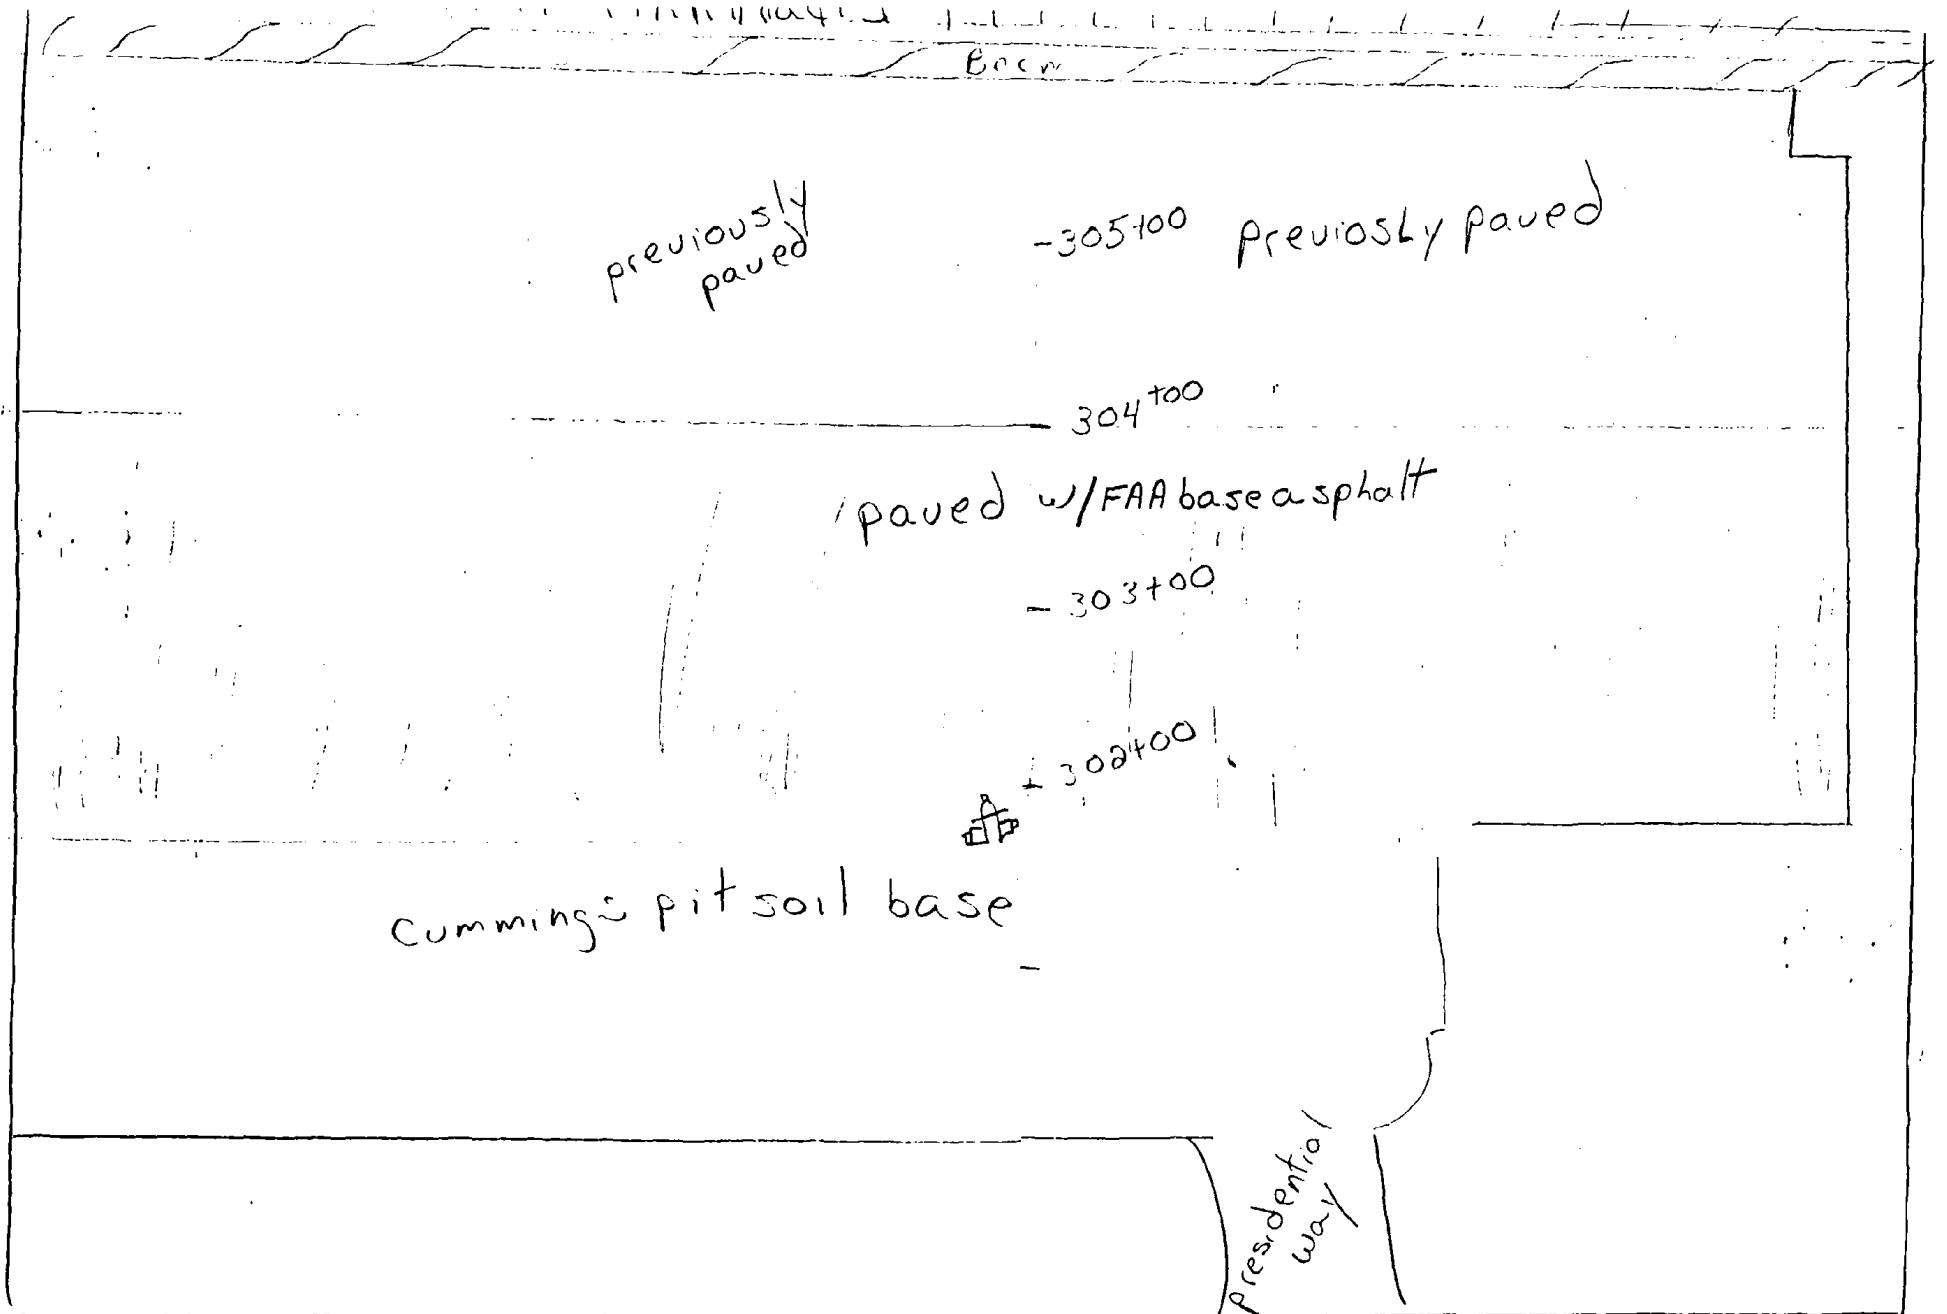 previously
paved
-305+00 previosly paved
- 304+00
paved w/FAA base asphalt
- 303+00
- 302+00
Cummings pit soil base
-
presidential
way